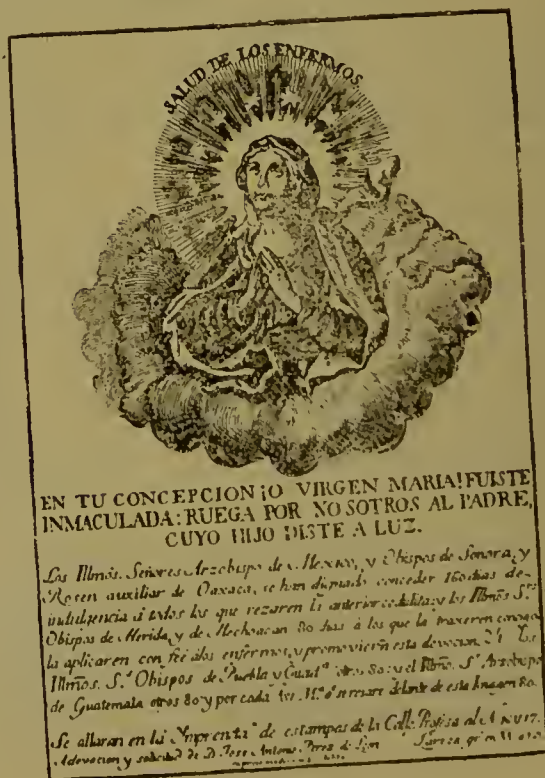 SALUD DE LOS ENFERMOS
EN TU CONCEPCION ¡O VIRGEN MARIA! FUISTE
INMACULADA: RUEGA POR NOSOTROS AL PADRE,
CUYO HIJO DISTE A LUZ.
Los Illmôs. Señores Arzobispo de Mexico, y Obispos de Sonora, y
Rosen auxiliar de Oaxaca, se han dignado conceder 160 dias de
indulgencia á todos los que rezaren la anterior cedulita; y los Illmôs S.es
Obispos de Merida, y de Mechoacan 80 dias á los que la traxeren consigo
la aplicaren con feé á los enfermos, y promovieren esta devocion. Los
Illmôs. S.s Obispos de Puebla y Guad.a otros 80: y el Illmô. S.r Arzobispo
de Guatemala otros 80 y por cada Ave M.a q.e se rezare delante de esta Imagen 80.
Se allaran en la Ymprenta de estampas de la Calle Profesa al N.
devocion y solicitud de D. Jose Antonio Perez de